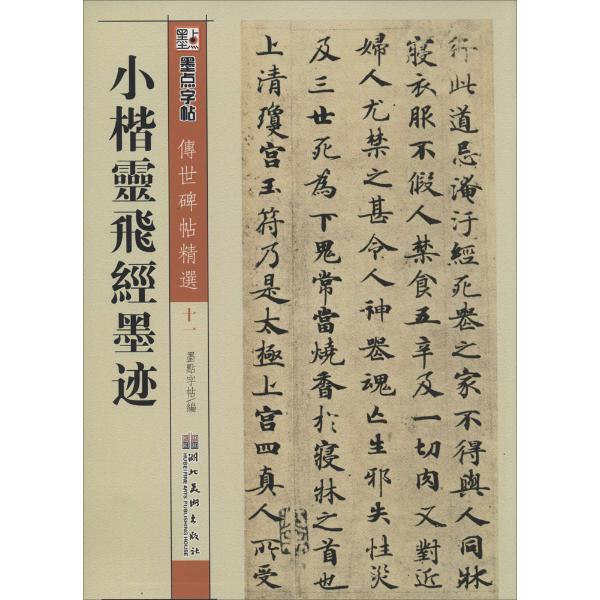 行此道忌淹汙經死喪之家不得與人同牀
寢衣服不假人禁食五辛及一切肉又對近
婦人尤禁之甚令人神喪魂亡生邪失性災
及三世死為下鬼常當燒香於寢牀之首也
上清瓊宮玉符乃是太極上宮四真人所受
墨点
墨点字帖
傳世碑帖精選
十一
墨點字帖/編
湖北美術出版社
HUBEI FINE ARTS
PUBLISHING HOUSE
小楷靈飛經墨迹